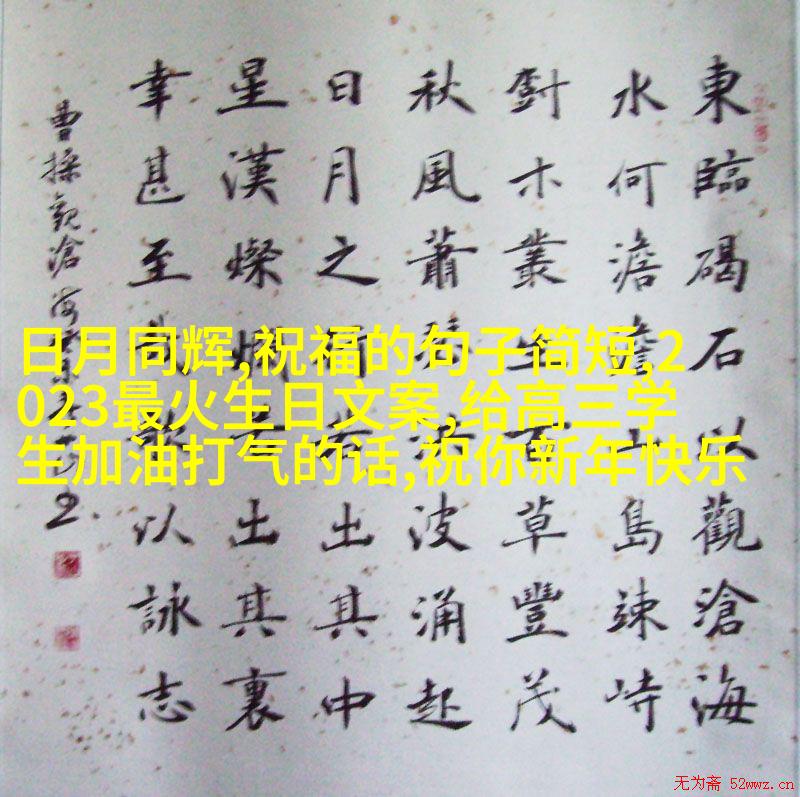 日月同辉,祝福的句子简短,2
023最火生日文案,给高三学
生加油打气的话,祝你新年快乐
東臨碣石以觀滄海
水何澹澹山島竦峙
木叢生百草豐茂
秋風蕭瑟洪波涌起
日月之行若出其中
星漢燦爛若出其裏
幸甚至哉歌以詠志
曹操觀滄海
无为斋 52wwz.cn